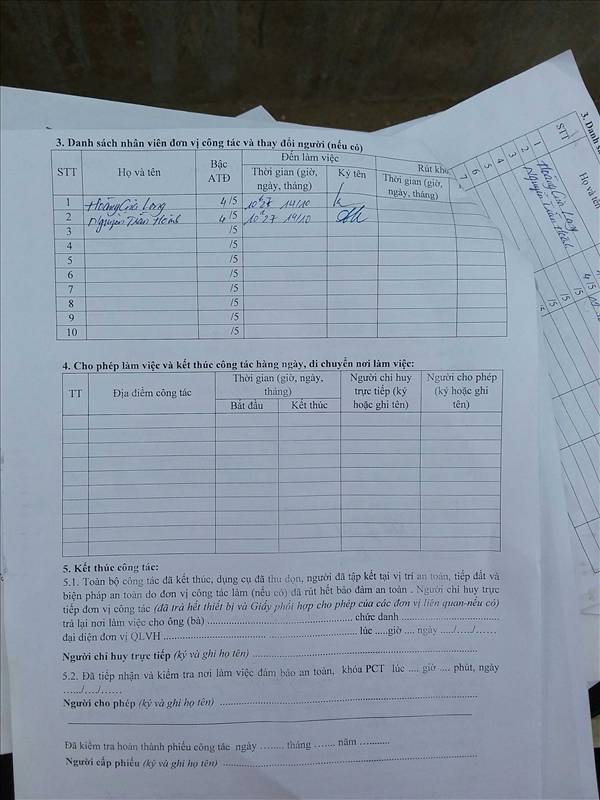 3. Danh sách nhân viên đơn vị công tác và thay đổi người (nếu có)
STT Họ và tên Bậc ATĐ Đến làm việc Rút khỏi
Thời gian (giờ, ngày, tháng) Ký tên Thời gian (giờ, ngày, tháng)
1 Hoàng Gia Long 4/5 10h27 14/10
2 Nguyễn Tiến 4/5 10h27 14/10
3 /5
4 /5
5 /5
6 /5
7 /5
8 /5
9 /5
10 /5
4. Cho phép làm việc và kết thúc công tác hàng ngày, di chuyển nơi làm việc:
TT Địa điểm công tác Thời gian (giờ, ngày, tháng) Người chỉ huy trực tiếp (ký hoặc ghi tên) Người cho phép (ký hoặc ghi tên)
Bắt đầu Kết thúc
5. Kết thúc công tác:
5.1. Toàn bộ công tác đã kết thúc, dụng cụ đã thu dọn, người đã tập kết tại vị trí an toàn, tiếp đất và
biện pháp an toàn do đơn vị công tác làm (nếu có) đã rút hết bảo đảm an toàn . Người chỉ huy trực
tiếp đơn vị công tác (đã trả hết thiết bị và Giấy phối hợp cho phép của các đơn vị liên quan-nếu có)
trả lại nơi làm việc cho ông (bà) ........ chức danh ........
đại diện đơn vị QLVH ........ lúc .....giờ .... ngày ...../..../......
Người chỉ huy trực tiếp (ký và ghi họ tên) ........
5.2. Đã tiếp nhận và kiểm tra nơi làm việc đảm bảo an toàn, khóa PCT lúc .... giờ .... phút, ngày
....../..../......
Người cho phép (ký và ghi họ tên) ........
Đã kiểm tra hoàn thành phiếu công tác ngày ........ tháng ...... năm ..........
Người cấp phiếu (ký và ghi họ tên) ........
3. Danh
STT Họ và tên
1 Hoàng Gia Long 4/5
2 Nguyễn Tiến
3 /5
4 /5
5 /5
6
7